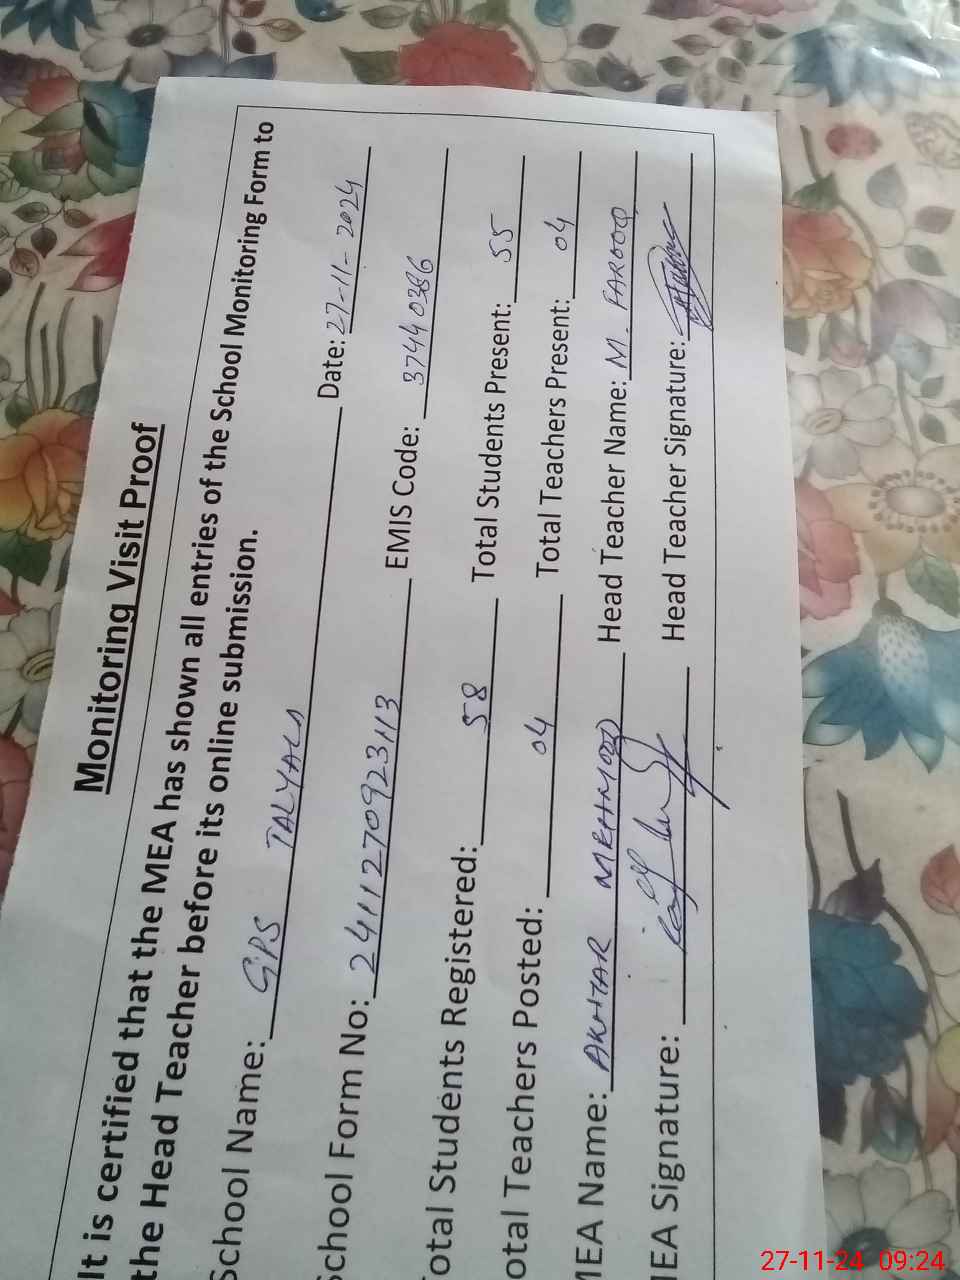 Monitoring Visit Proof
It is certified that the MEA has shown all entries of the School Monitoring Form to
the Head Teacher before its online submission.
School Name: GPS TALYALA Date: 27-11-2024
School Form No: 2411270923113 EMIS Code: 37440386
otal Students Registered: 58 Total Students Present: 55
otal Teachers Posted: 04 Total Teachers Present: 04
MEA Name: AKHTAR MEHMOOD Head Teacher Name: M. FAROOQ
IEA Signature: Head Teacher Signature:
27-11-24 09:24